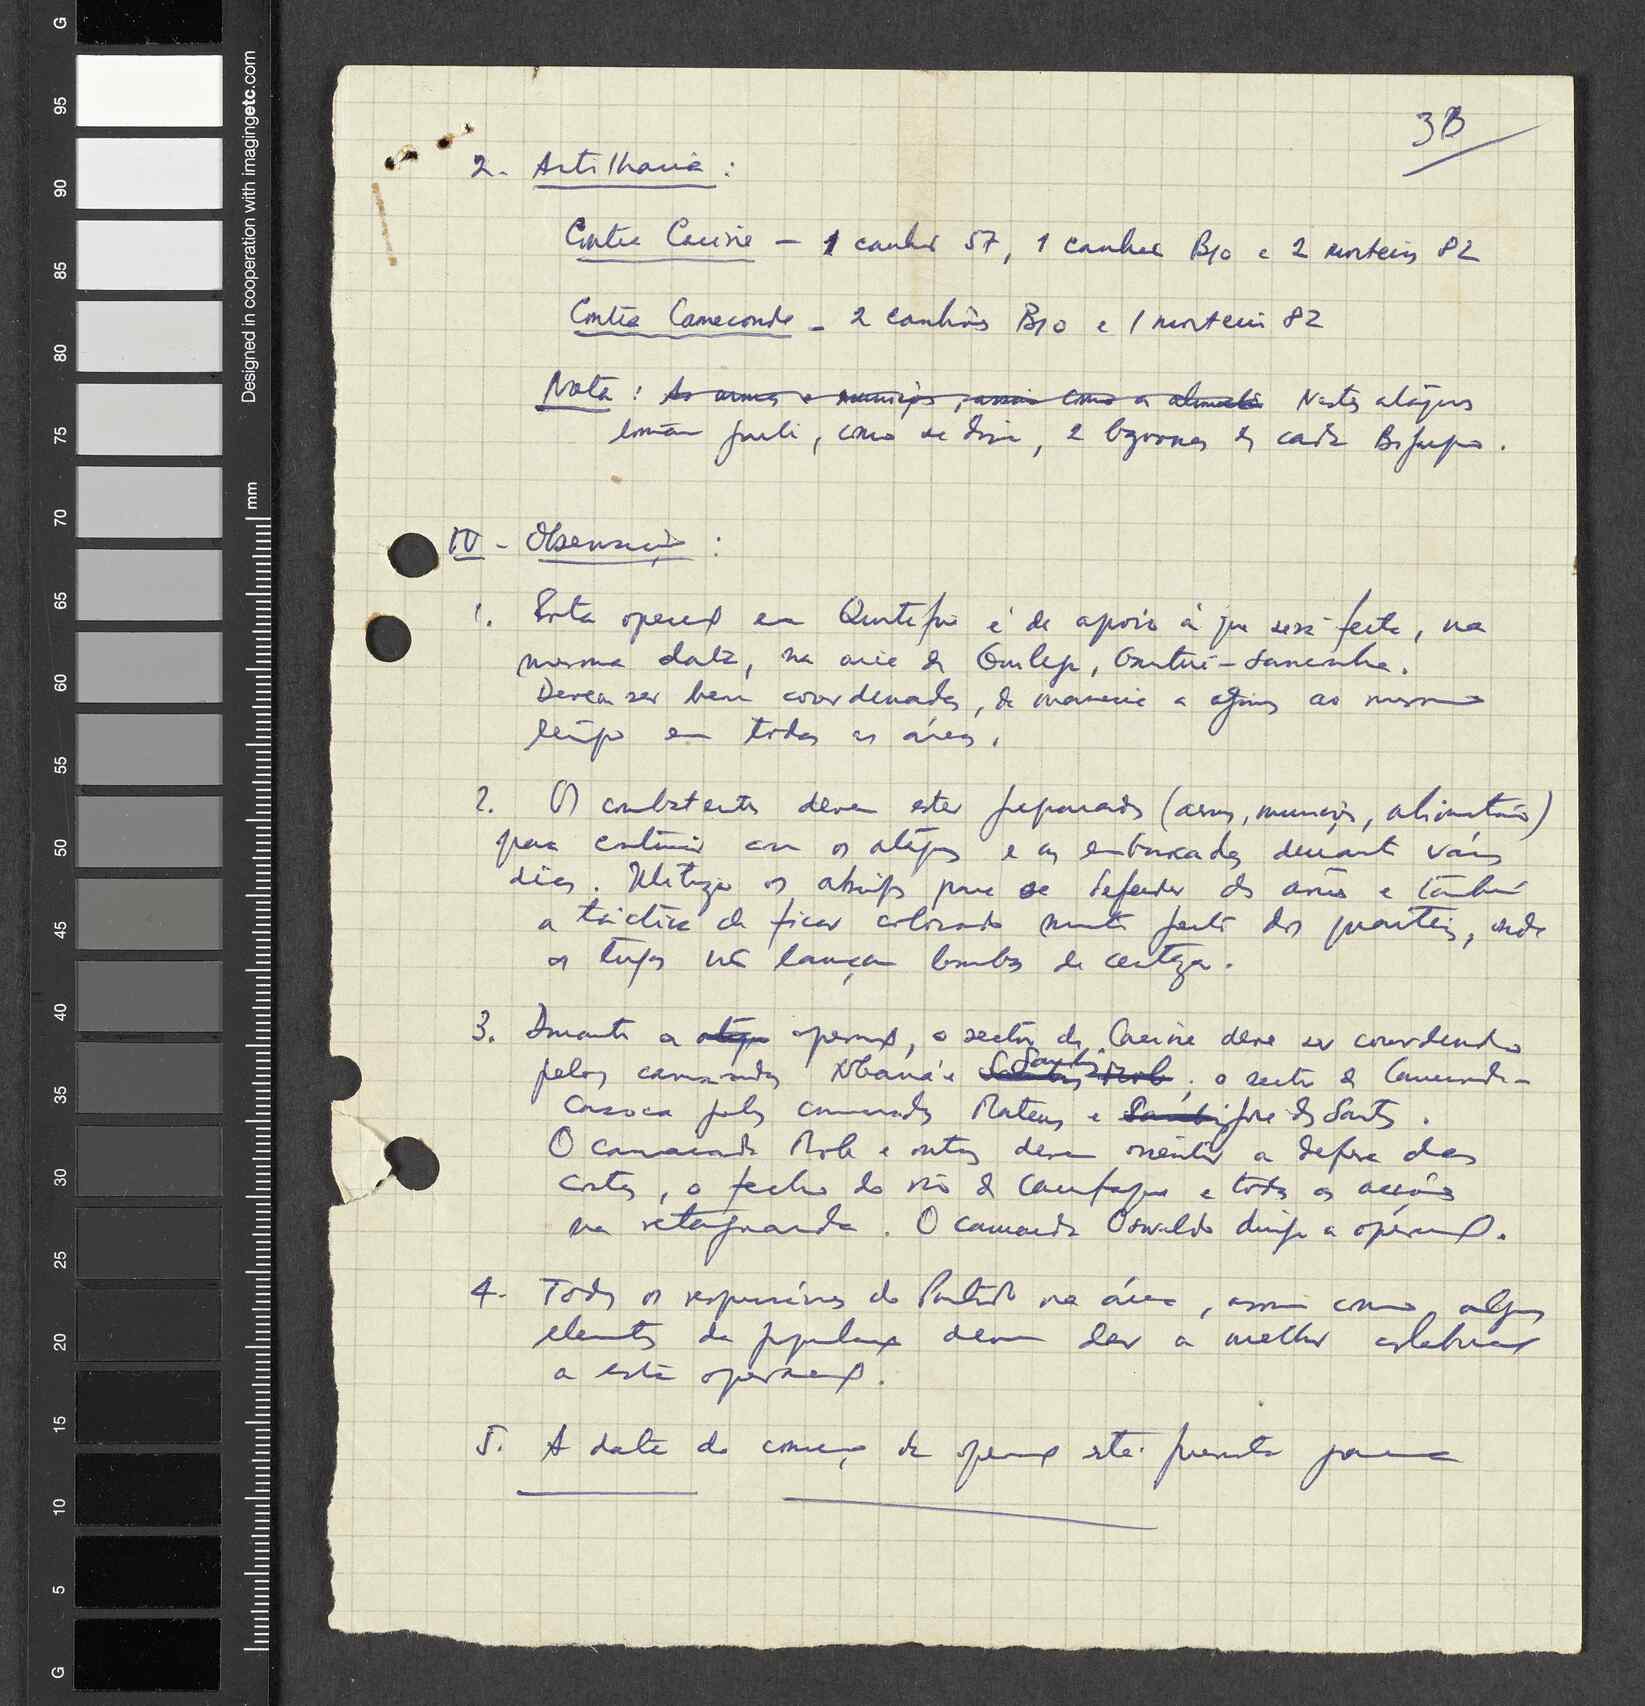 3B
2. Artilharia :
Contra Cacine – 1 canhão 57, 1 canhão B10 e 2 morteiros 82
Contra Cameconde – 2 canhões B10 e 1 morteiro 82
Nota : As armas e munições, assim como a Nestes ataques
tomam parte, como se disse, 2 bazookas de cada Bigrupo.
IV - Observações :
1. Esta operação em Quitafine é de apoio à que será feita, na
mesma data, na área de
Devem ser bem coordenadas, de maneira a agirmos ao mesmo
tempo em todas as áreas.
2. Os combatentes devem estar preparados (armas, munições, alimentação)
para continuar com os ataques e as emboscadas durante vários
dias. Utilizar os abrigos para se defender dos aviões e também
a táctica de ficar colocado muito perto dos quarteis, onde
os tugas não lançam bombas de certeza.
3. Durante a ataque operação, o sector de Cacine deve ser coordenado
pelos camaradas e ; o sector de Cameconde-
Cassaca pelos camaradas Mateus e José dos Santos.
O camarada e outros devem orientar a defesa das
costas, o fecho do rio de e todas as acções
na retaguarda. O camarada Oswaldo dirige a operação.
4. Todos os responsáveis do Partido na área, assim como alguns
elementos da população devem dar a melhor colaboração
a esta operação.
5. A data do começo da operação está prevista para
95
90
85
80
75
70
65
60
55
50
45
40
35
30
25
20
15
10
5
G
G
mm
Designed in cooperation with imagingetc.com